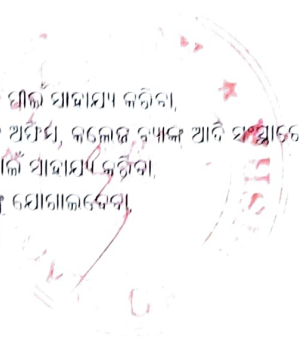 ପାଇଁ ସାହାଯ୍ୟ କରିବା,
ଅଫିସ, କଲେଜ ବ୍ୟାଙ୍କ ଆଦି ସଂସ୍ଥାରେ
ସାହାଯ୍ୟ କରିବା
ଯୋଗାଇଦେବା,